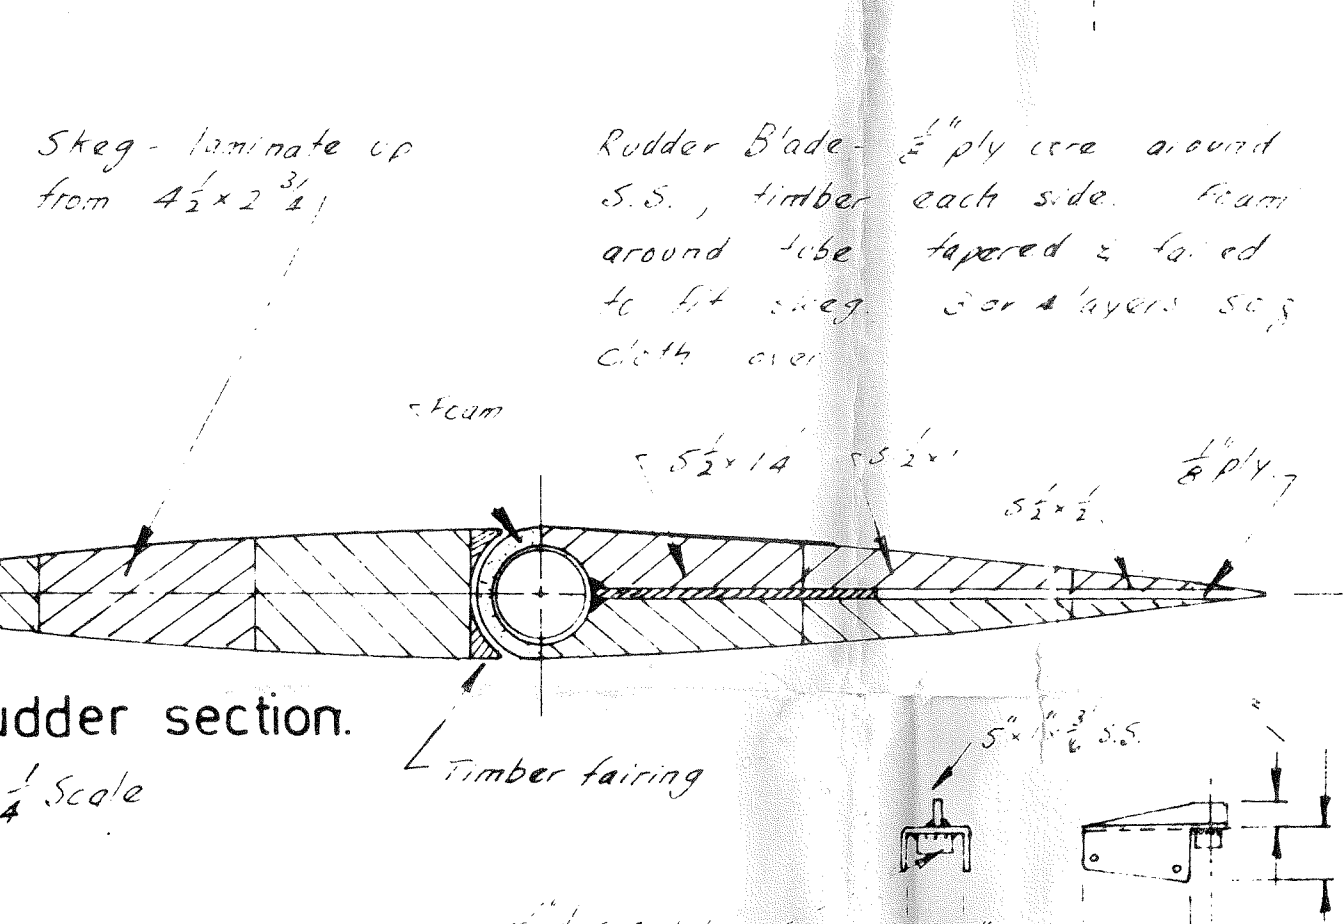 Skeg - laminate up
from 4 1/2 x 2 3/4
Rudder Blade - 1/2" ply core around
S.S., timber each side. Foam
around tube tapered & faired
to fit skeg. 3 or 4 layers
cloth over
Foam
5 1/2 x 1 4
5 1/2 x 1
5 1/2 x 1/2
1/8" ply.
udder section.
1/4 Scale
Timber fairing
S.S.